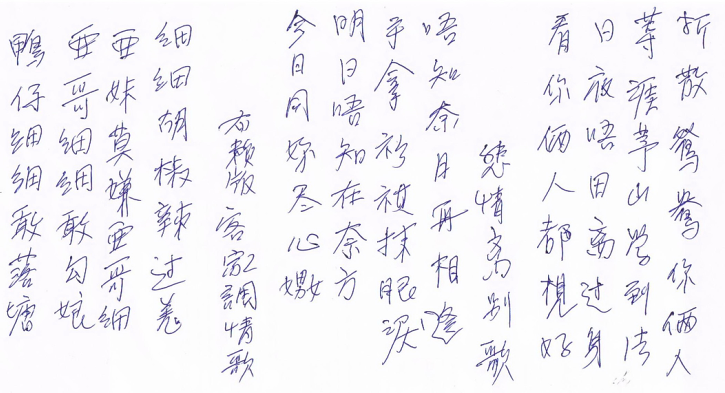 折散鴛鴦你俩人
等涯茅山学到法
日夜唔田离过身
看你俩人都想好
戀情离别歌
唔知奈日再相逢
手拿衫袱抹眼泪
明日唔知在奈方
今日同妳尽心嫐
无赖版 客家調情歌
细细胡椒辣过羌
亚妹莫嫌亚哥细
亚哥细细敢勾娘
鴨仔细细敢落塘